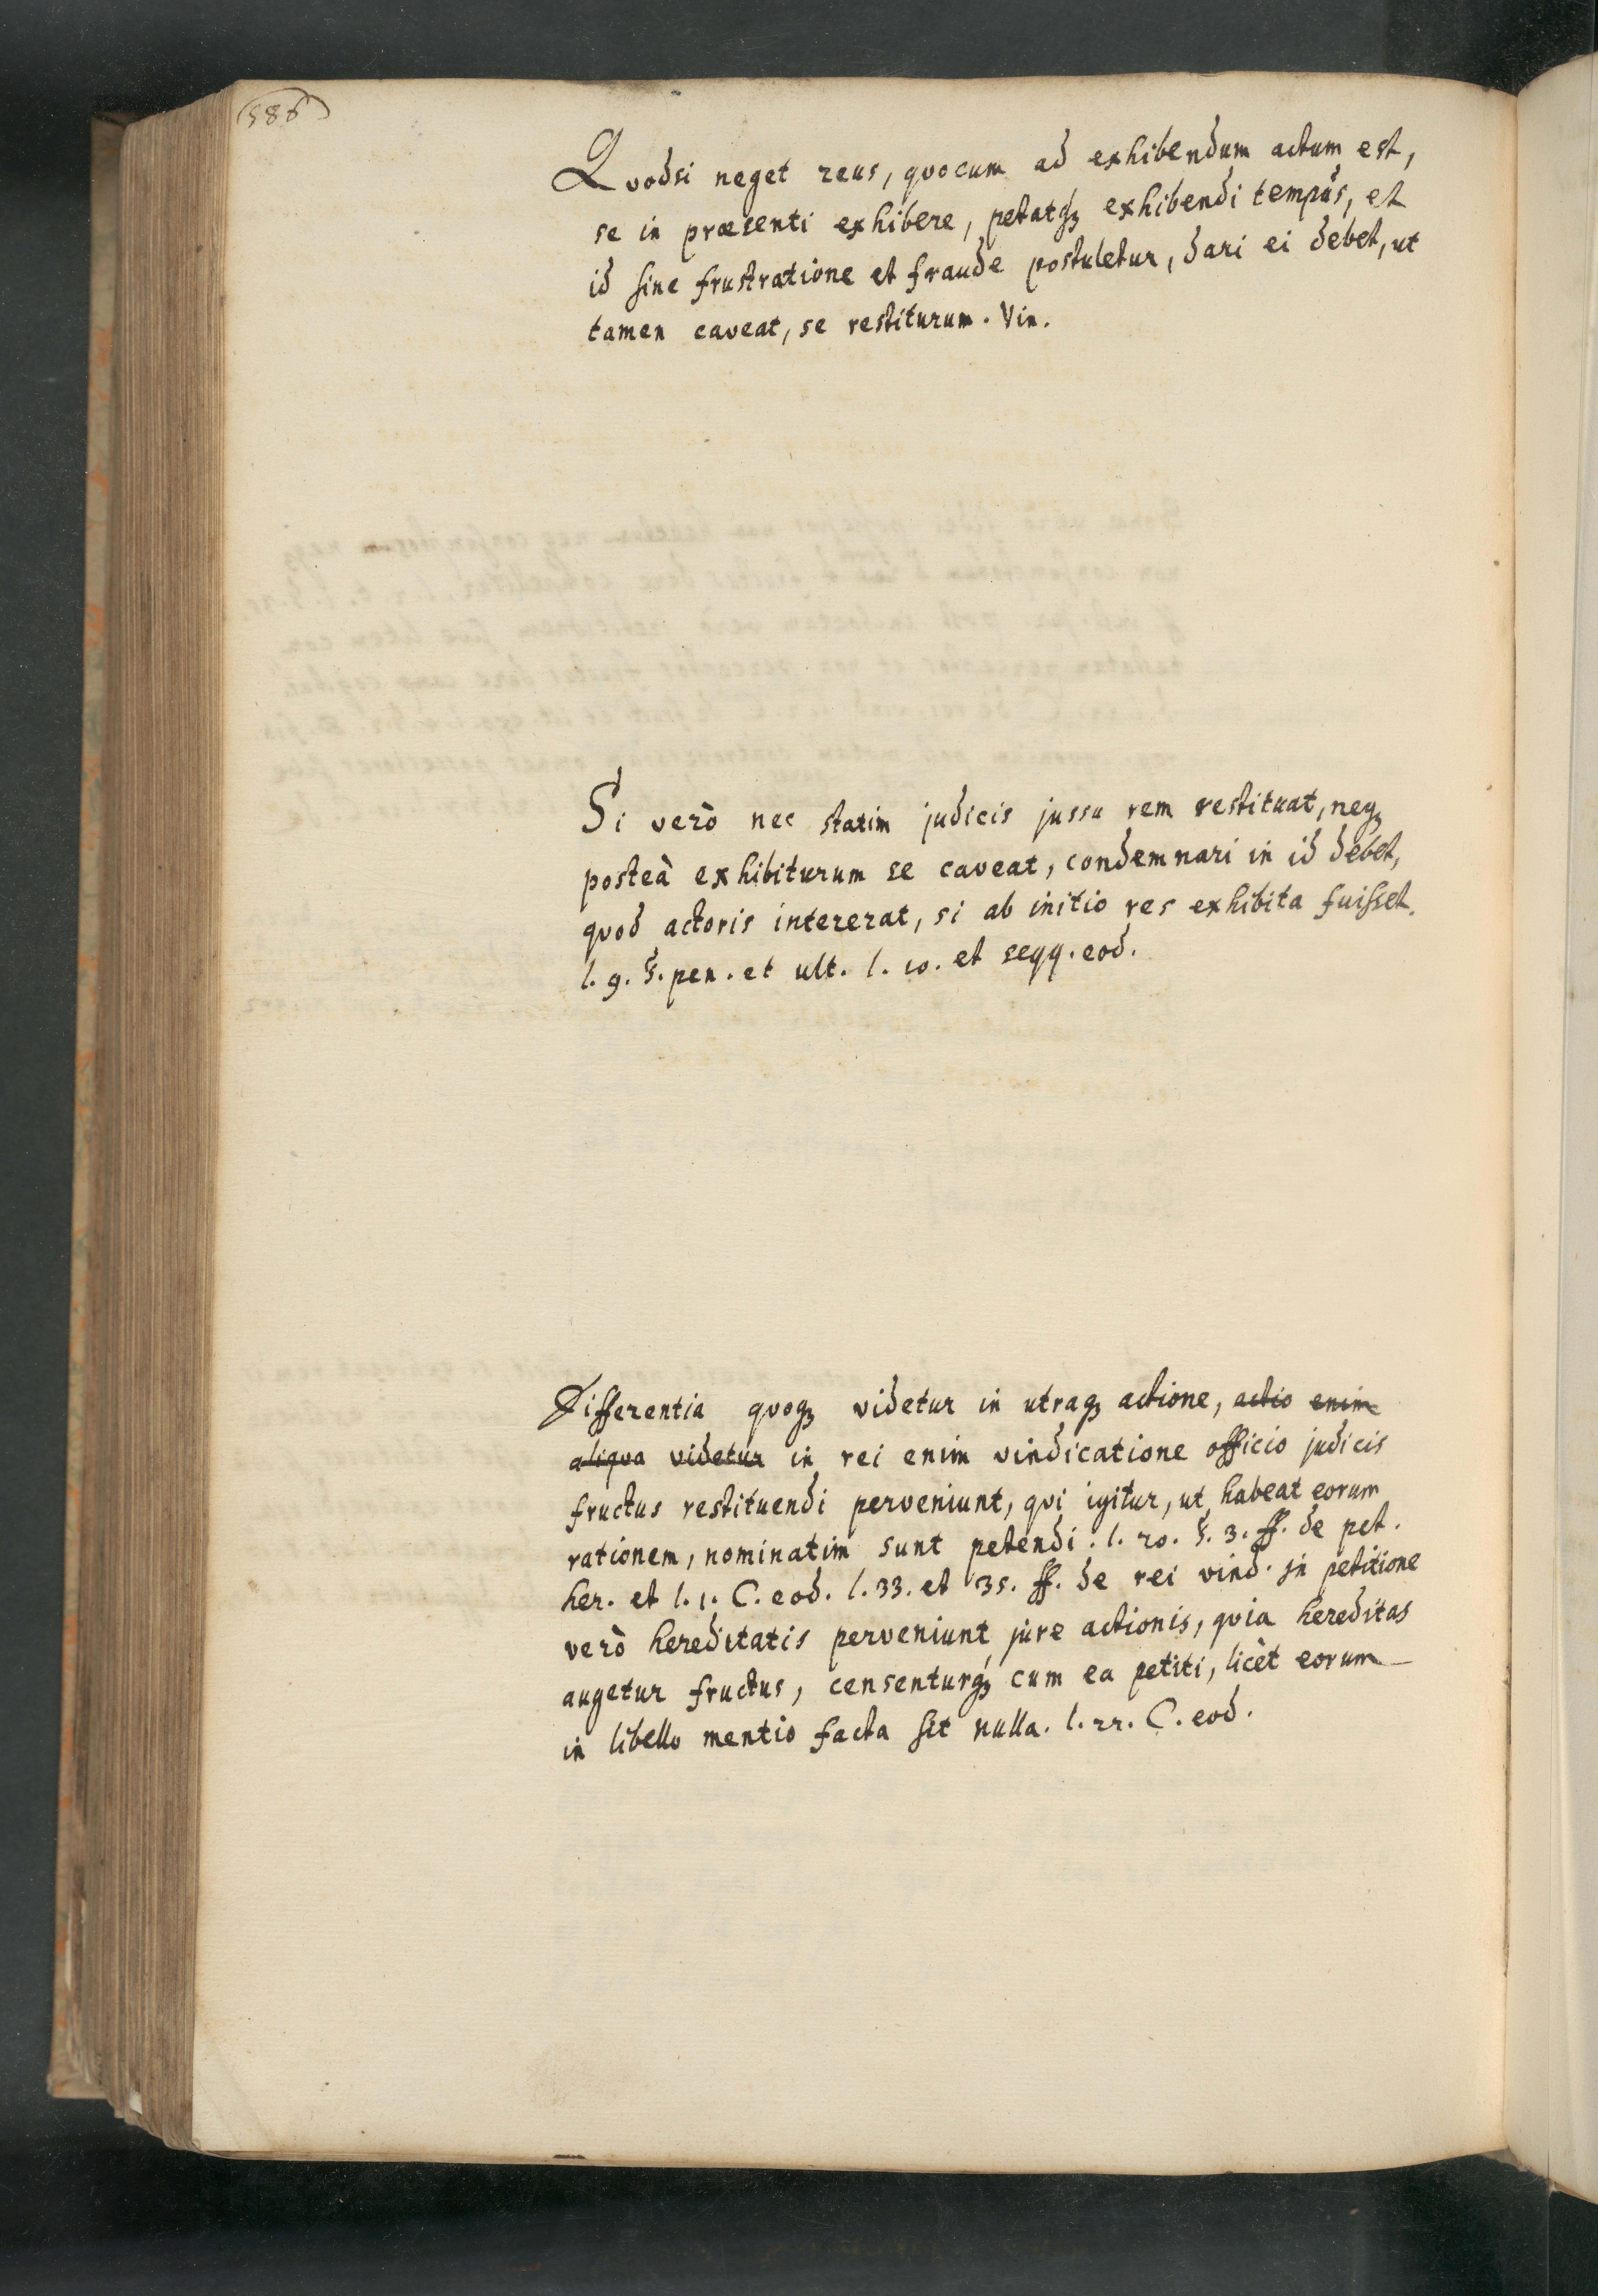 586
Quodsi neget reus, quocum ad exhibendum actum est,
se in præsenti exhibere, petatqꝫ exhibendi tempus, et
id sine frustratione et fraude postuletur, dari ei debet, ut
tamen caveat, se restiturum. Vin.
Si verò nec statim judicis jussu rem restituat, neqꝫ
posteà exhibiturum se caveat, condemnari in id debet,
quod actoris intererat, si ab initio res exhibita fuisset.
l. 9. §. pen. et ult. l. 10. et seqq. eod.
Differentia quoqꝫ videtur in utraqꝫ actione, actio enim
aliqua videtur in rei enim vindicatione officio judicis
fructus restituendi perveniunt, qui igitur, ut habeat eorum
rationem, nominatim sunt petendi. l. 20. §. 3. ff. de pet.
her. et l. 1. C. eod. l. 33. et 35. ff. de rei vind. in petitione
verò hereditatis perveniunt jure actionis, quia hereditas
augetur fructus, censenturqꝫ cum ea petiti, licèt eorum
in libello mentio facta sit nulla. l. 22. C. eod.